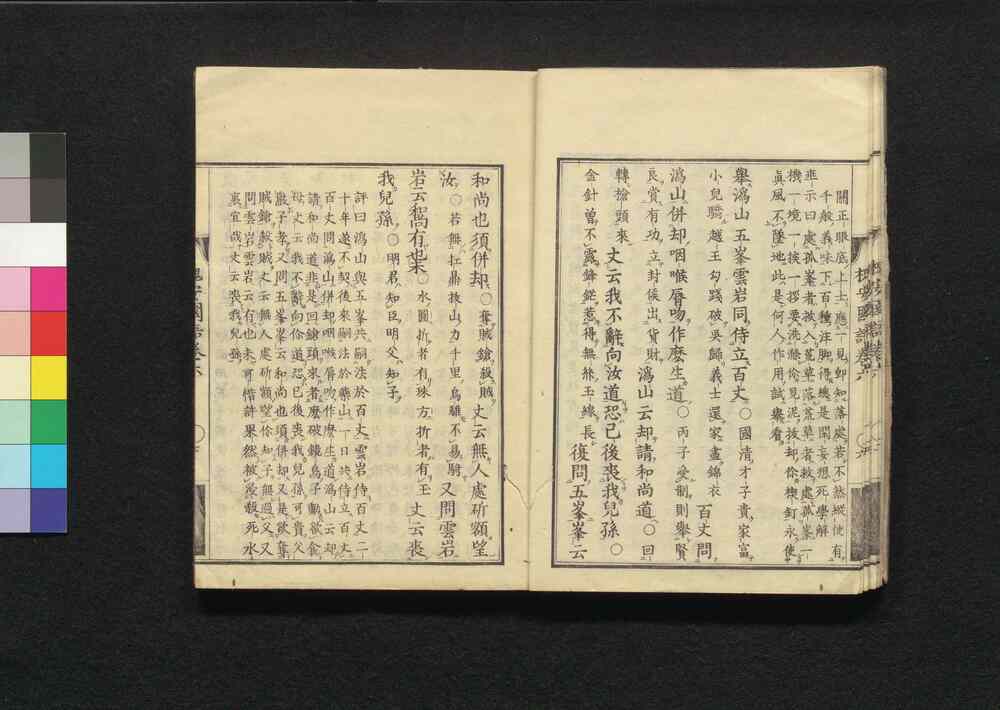 關正眼底上士應一見卽知落處若不然縱使有
千般義味下百種注脚得總是閑妄想死學解
垂示曰處孤峯者救入荒草落荒草者救處孤峯一
機一境一挨一拶要洗滌你見泥拔却你楔釘永使
眞風不墜地此是何人作用試擧看
擧潙山五峯雲岩同侍立百丈○國清才子貴家富
小兒驕越王勾踐破吳歸義士還家盡錦衣百丈問
潙山併却咽喉唇吻作麽生道○丙子受制則擧賢
良賞有功立封侯出貨財潙山云却請和尚道○回
轉搶頭來丈云我不辭向汝道恐已後喪我兒孫○
金針曾不露鋒鋩惹得無絲玉線長復問五峯峯云
和尚也須併却○奪賊鎗殺賊丈云無人處斫額望
汝○若無扛鼎拔山力千里烏騅不易騎又問雲岩
岩云和尚有也未○水圓折者有珠方折者有玉丈云喪
我兒孫○明君知臣明父知子
評曰潙山與五峯共嗣法於百丈雲岩侍百丈二
十年遂不契後來嗣法於藥山一日共侍立百丈
百丈問潙山併却咽喉唇吻作麽生道潙山云却
請和尚道非是回鎗頭來者麽破鏡鳥子動欲食
母丈云我不辭向你道恐已後喪我兒孫可貴父
嚴子孝又問五峯峯云和尚也須併却又是欲奪
賊鎗殺賊丈云無人處斫額望你知子無過父又
問雲岩雲岩云有也未可惜許果然被浸殺死水
裏宜哉丈云喪我兒孫